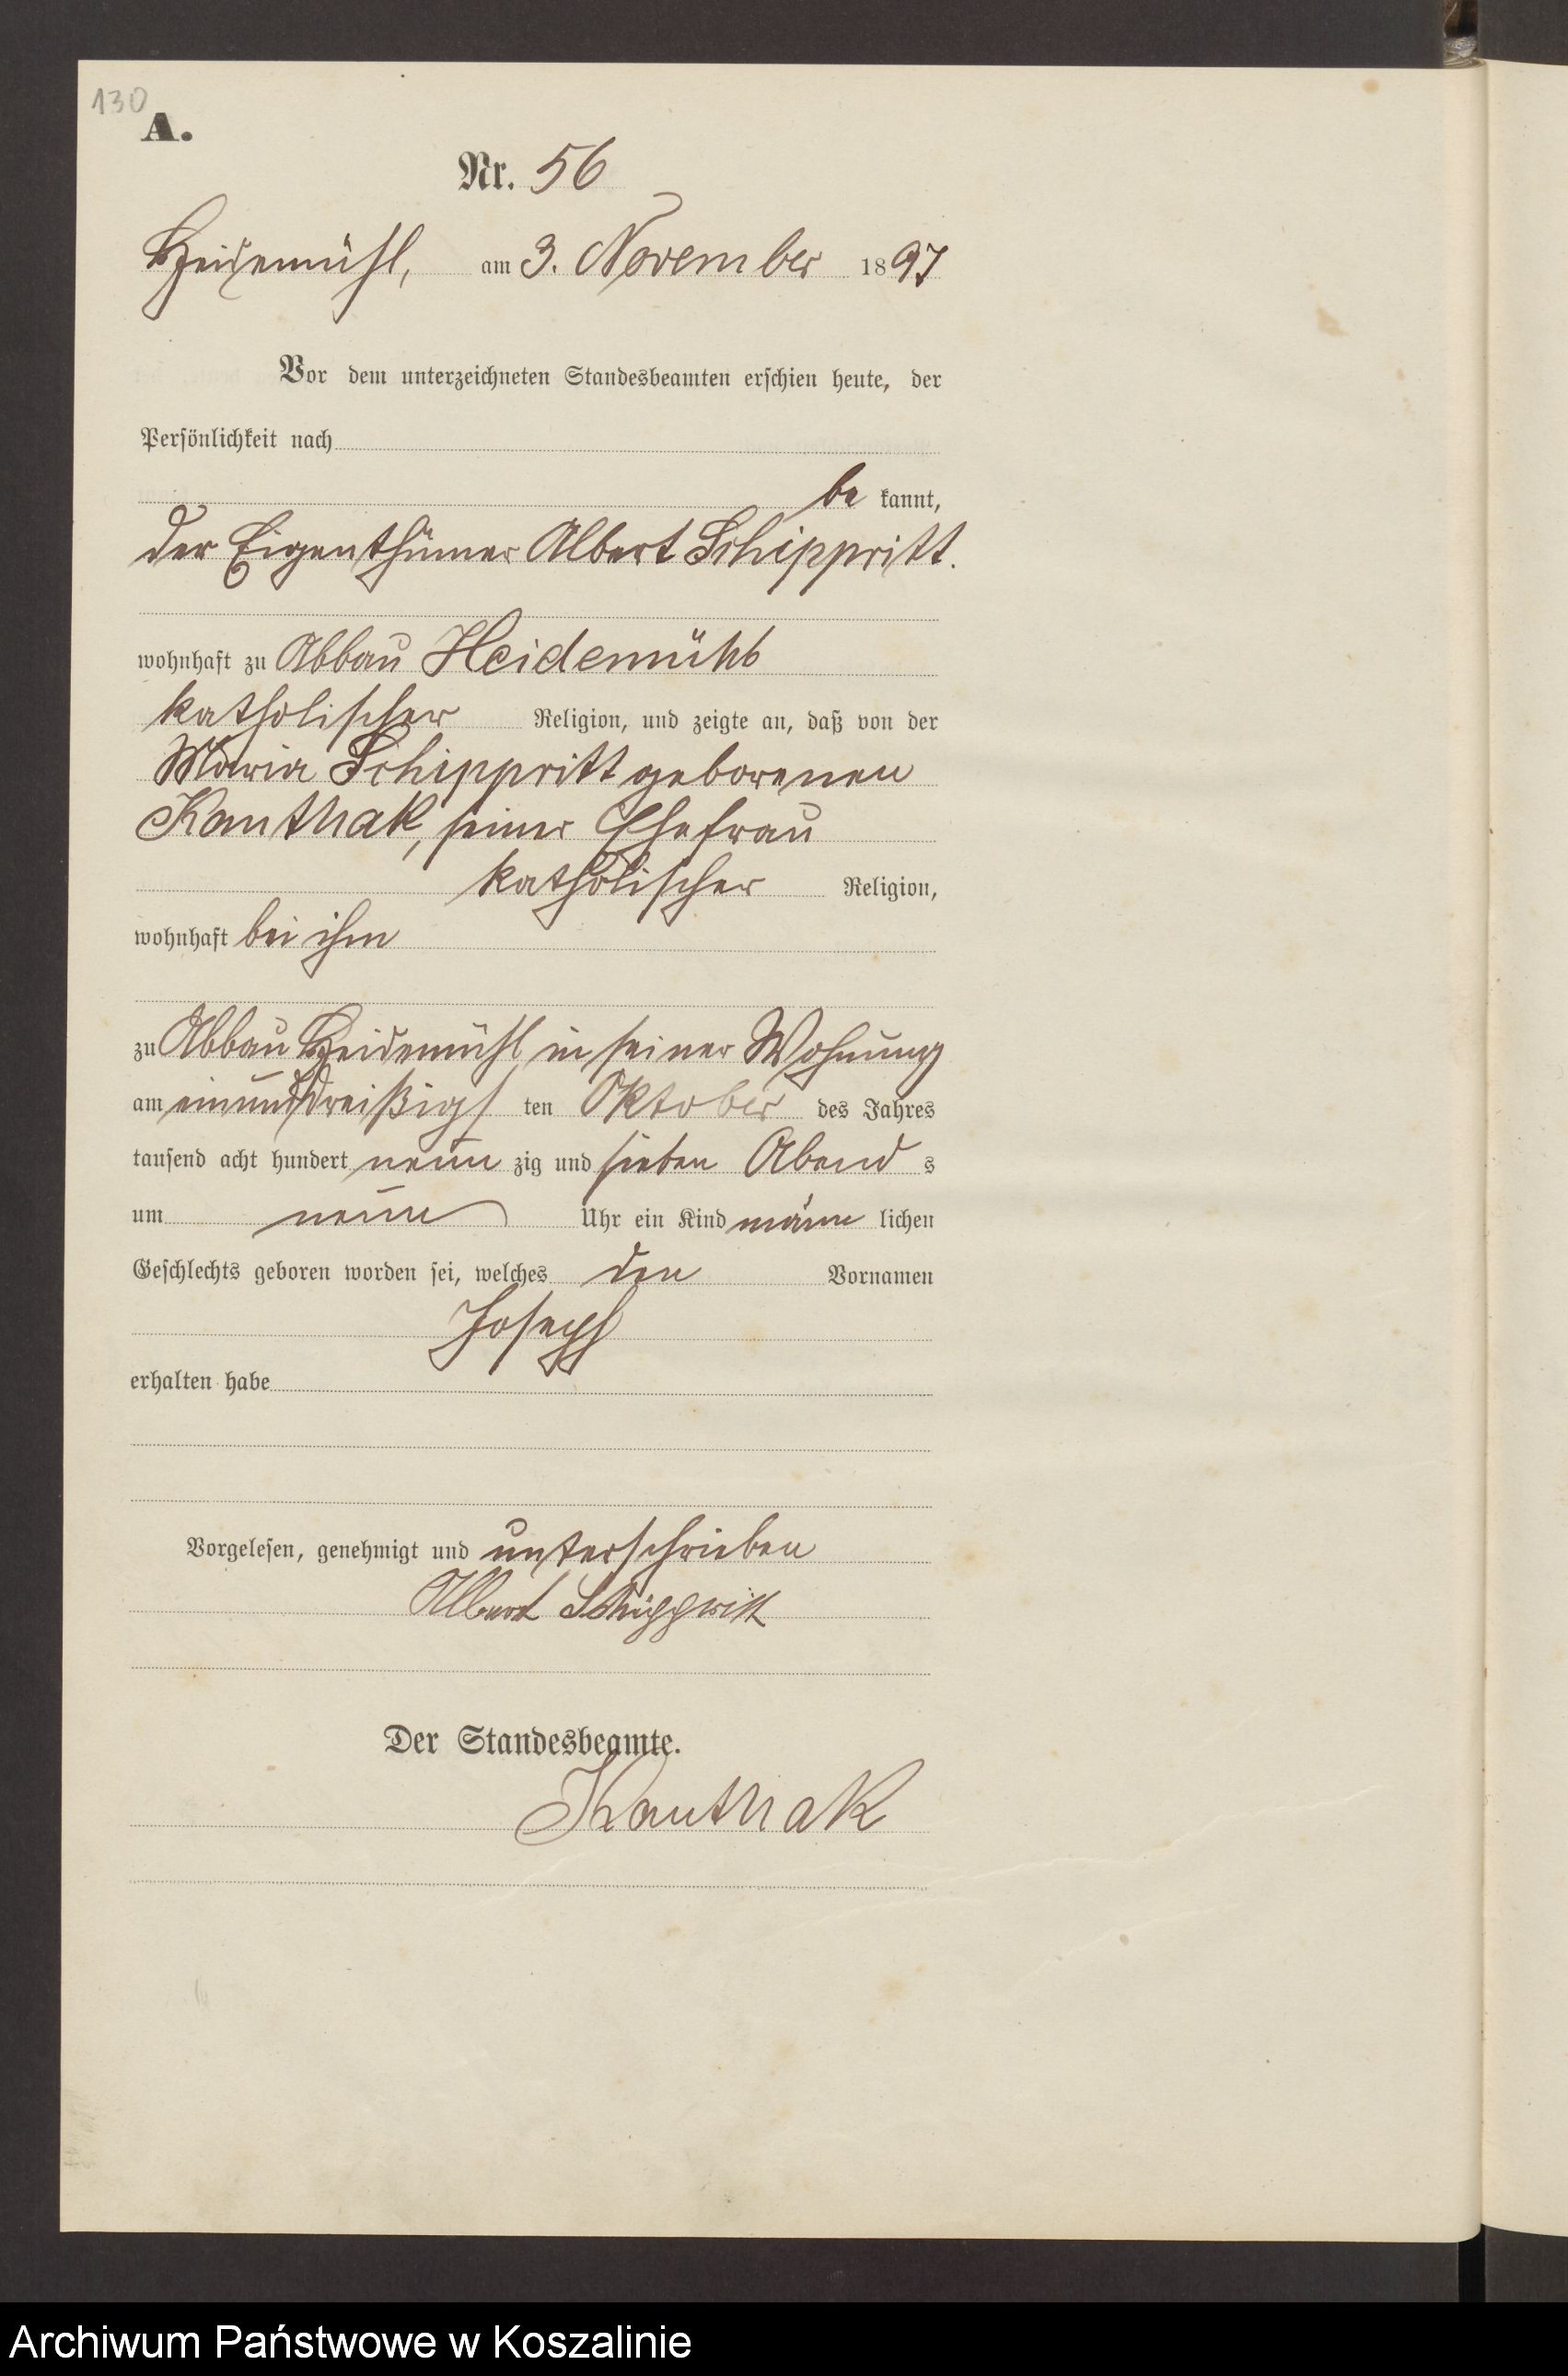 130
A.
Nr. 56
Heidemühl, am 3. November 1897
Vor dem unterzeichneten Standesbeamten erschien heute, der
Persönlichkeit nach
be kannt,
der Eigenthümer Albert Schippritt.
wohnhaft zu Abbau Heidemühl
katholischer Religion, und zeigte an, daß von der
Maria Schippritt geborenen
Kanthak, seiner Ehefrau
katholischer Religion,
wohnhaft bei ihm
zu Abbau Heidemühl in seiner Wohnung
am einunddreißigs ten Oktober des Jahres
tausend acht hundert neun zig und sieben Abend s
um neun Uhr ein Kind männ lichen
Geschlechts geboren worden sei, welches den Vornamen
Joseph
erhalten habe
Vorgelesen, genehmigt und unterschrieben
Albert Schippritt
Der Standesbeamte.
Kanthak
Archiwum Państwowe w Koszalinie